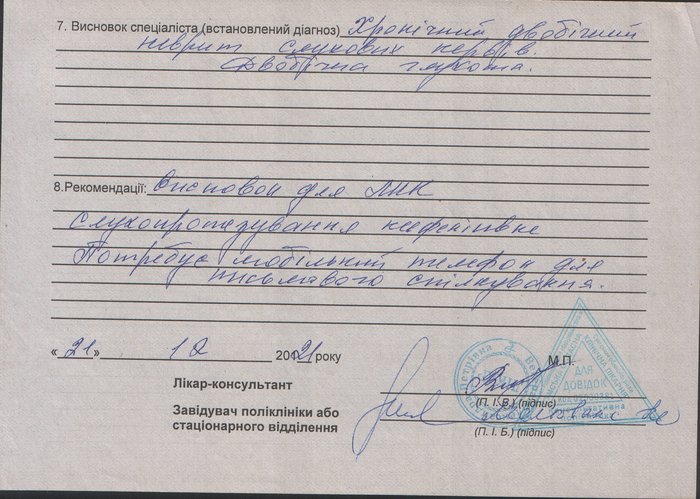 7. Висновок спеціаліста (встановлений діагноз) Хронічний двобічний
неврит слухових нервів.
Двобічна глухота.
8.Рекомендації: Висновок для ЛКК
Слухопротезування неефективне
Потребує мобільний телефон для
письмового спілкування.
« 21 » 12 2021 року
М.П.
Лікар-консультант
(П. І. Б.) (підпис)
Завідувач поліклініки або
стаціонарного відділення
(П. І. Б.) (підпис)
ДЛЯ
ДОВІДОК